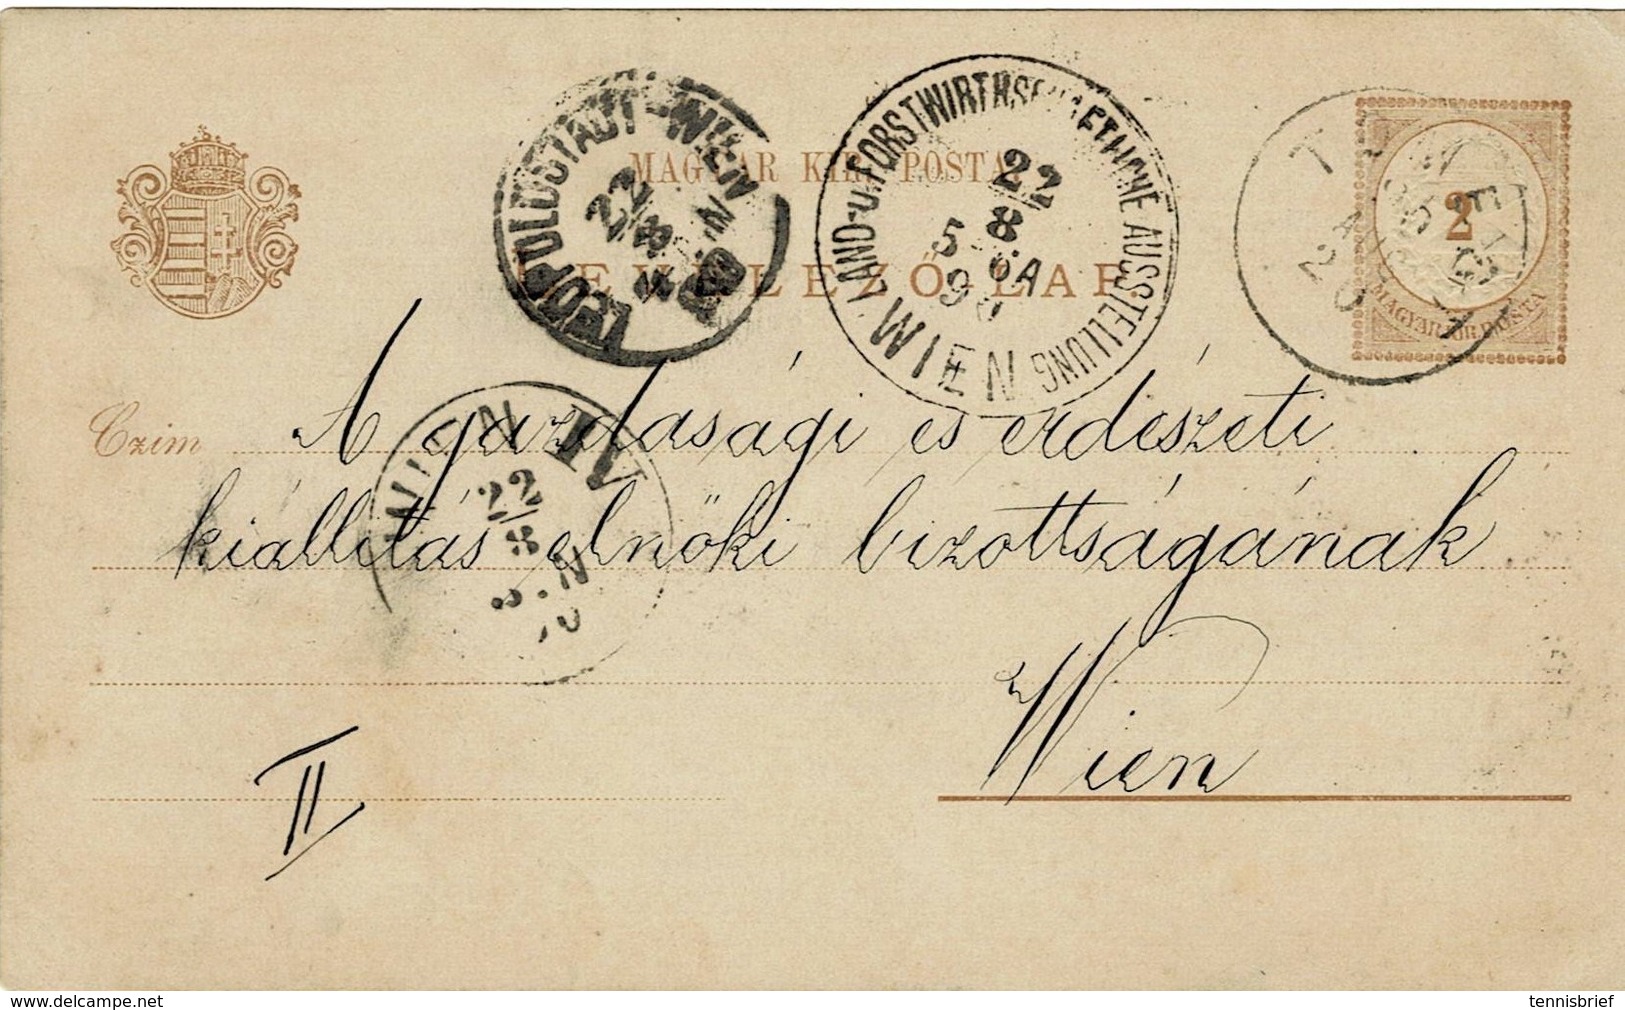 MAGYAR KIR. POSTA
LEVELEZŐ-LAP
LEOPOLDSTADT-WIEN
22/8
LAND-u. FORSTWIRTHSCHAFTLICHE AUSSTELLUNG
WIEN
22
8
5-6A
90
2
MAGYAR KIR. POSTA
Czim A gazdasági és erdészeti
kiállítás elnöki bizottságának
WIEN
22
8
Wien
II
www.delcampe.net
tennisbrief